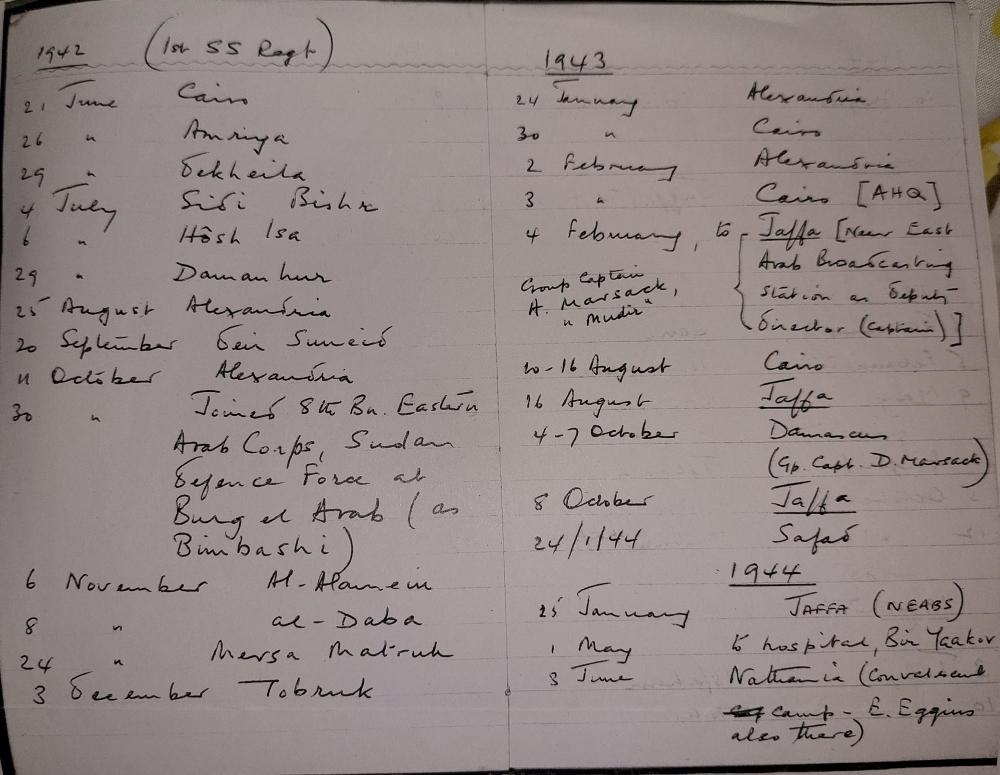 1942 (1st SS Regt)
21 June Cairo
26 " Amriya
29 " Dekheila
4 July Sidi Bishr
6 " Hôsh Isa
29 " Damanhur
25 August Alexandria
20 September Deir Suneid
11 October Alexandria
30 " Joined 8th Bn. Eastern
Arab Corps, Sudan
Defence Force at
Burg el Arab (as
Bimbashi)
6 November Al-Alamein
8 " al-Daba
24 " Mersa Matruh
3 December Tobruk
1943
24 January Alexandria
30 " Cairo
2 February Alexandria
3 " Cairo [AHQ]
4 February, to Jaffa [Near East
Arab Broadcasting
Station as Deputy
Director (Captain)]
Group Captain
A. Marsack,
"Mudir"
10-16 August Cairo
16 August Jaffa
4-7 October Damascus
(Gp. Capt. D. Marsack)
8 October Jaffa
24/1/44 Safad
1944
25 January JAFFA (NEABS)
1 May to hospital, Bir Yaakov
3 June Nathania (Convalescent
camp - E. Eggins
also there)